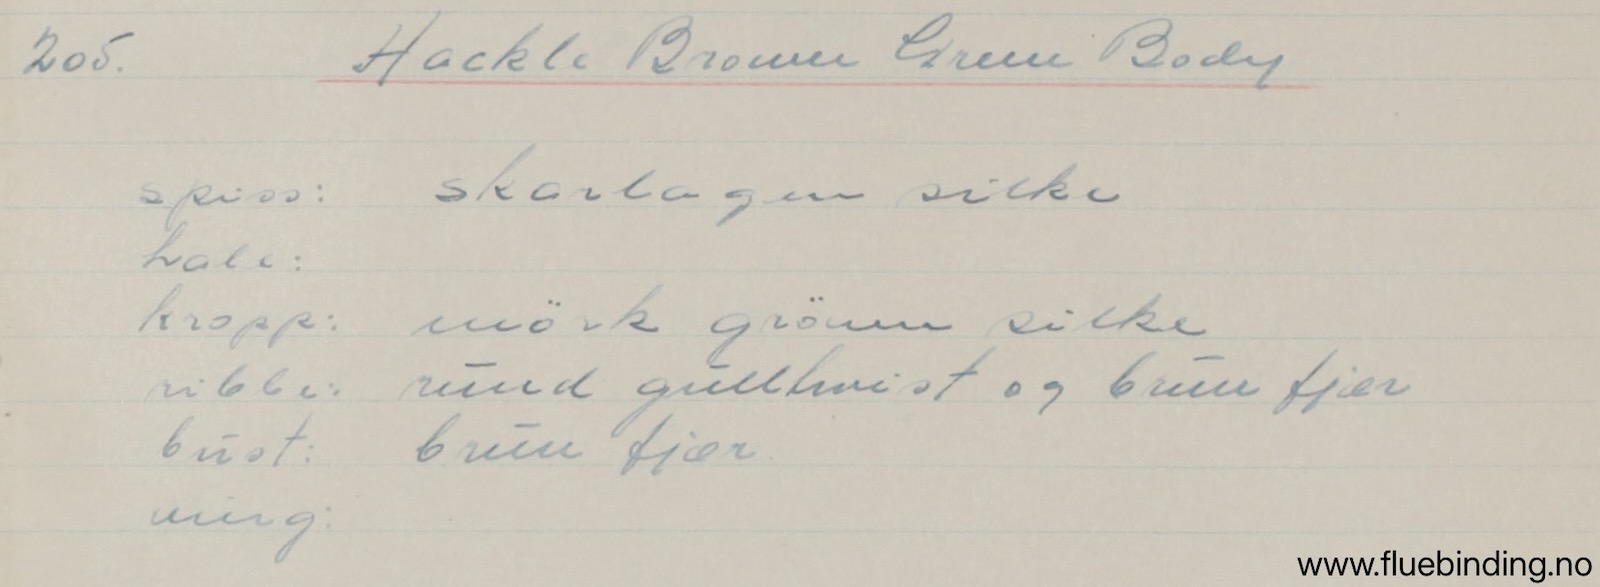 205. Hackle Brown Green Body
spiss: skarlagen silke
hale:
kropp: mörk grönn silke
ribbe: rūnd gūlltwist og brūn fjær
būst: brūn fjær
ving:
www.fluebinding.no